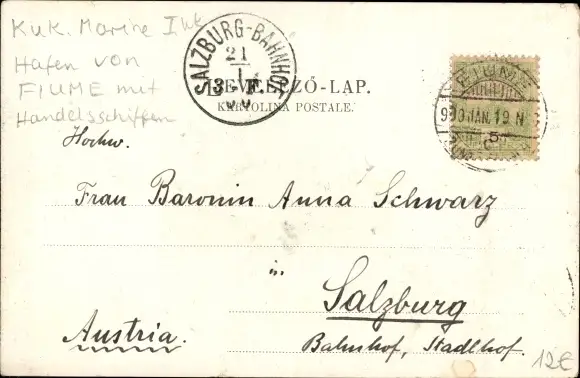 K.u.K. Marine
Hafen von
FIUME mit
Handelsschiffen
SALZBURG-BAHNHOF
21
1
3
LEVELEZŐ-LAP.
KARTOLINA POSTALE.
FIUME
900 JAN. 19 N
5
Hochw.
Frau Baronin Anna Schwarz
in
Salzburg
Austria.
Bahnhof, Stadlhof.
12€